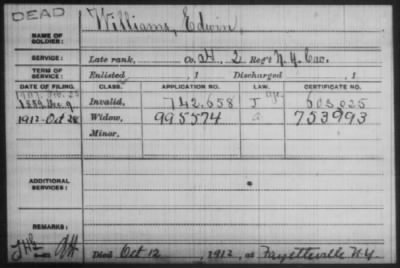 DEAD
Williams, Edwin,
NAME OF SOLDIER:
SERVICE: Late rank, Co. H, 2 Reg't N.Y. Cav.
TERM OF SERVICE: Enlisted , 1 Discharged , 1
DATE OF FILING. CLASS. APPLICATION NO. LAW. CERTIFICATE NO.
1889 Dec. 9 Invalid, 742.658 J 603.025
1912 Oct 28 Widow, 995574 a 753993
Minor.
ADDITIONAL SERVICES:
REMARKS:
Died Oct 12, 1912, at Fayetteville N.Y.